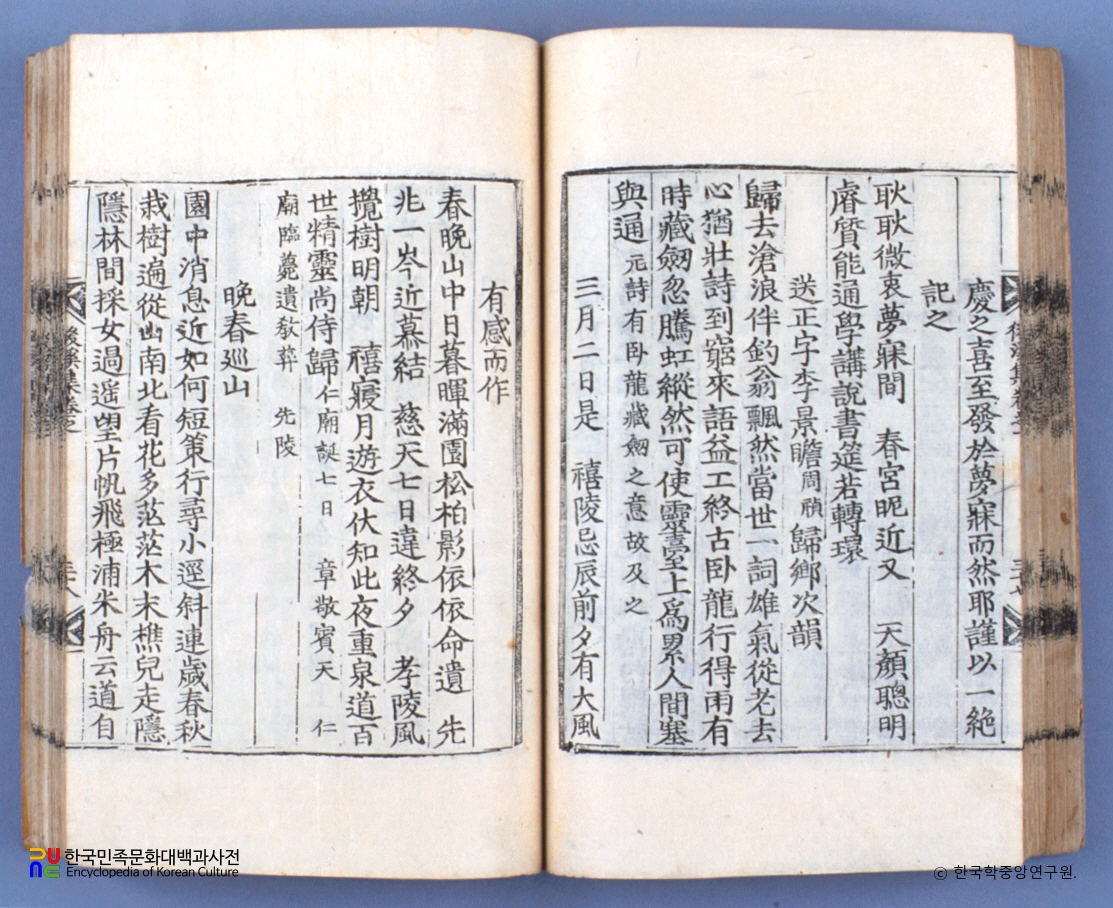 慶之喜至發於夢寐而然耶謹以一絶
記之
耿耿微衷夢寐間　春宮昵近又　天顔聰明
睿質能通學講說書筵若轉環
送正字李景瞻周禎歸鄉次韻
歸去滄浪伴釣翁飄然當世一詞雄氣從老去
心猶壯詩到窮來語益工終古臥龍行得雨有
時藏劒忍騰虹縱然可使靈臺上爲累人間塞
與通元詩有臥龍藏劒之意故及之
三月二日是　禧陵忌辰前夕有大風
有感而作
春晩山中日暮暉滿園松柏影依依命遺　先
兆一岑近慕結　慈天七日違終夕　孝陵風
攪樹明朝　禧寢月遊衣伏知此夜重泉道百
世精靈尚侍歸仁廟誕七日　章敬賓天　仁
廟臨薨遺敎葬　先陵
晩春巡山
園中消息近如何短策行尋小逕斜連歲春秋
栽樹遍從山南北看花多茫茫木末樵兒走隱
隱林間採女過遙望片帆飛極浦米舟云道自
三十七
後溪集卷之
三十八
한국민족문화대백과사전
Encyclopedia of Korean Culture
ⓒ 한국학중앙연구원.